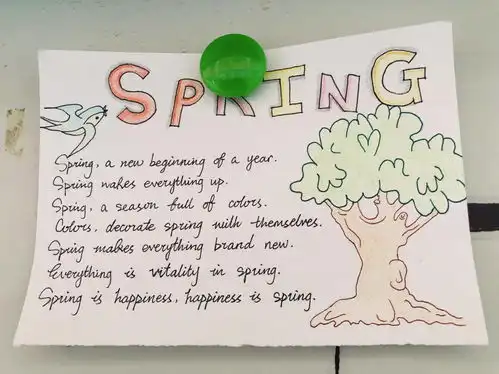 SPRING
Spring, a new beginning of a year.
Spring wakes everything up.
Spring, a season full of colors.
Colors, decorate spring with themselves.
Spring makes everything brand new.
Everything is vitality in spring.
Spring is happiness, happiness is spring.